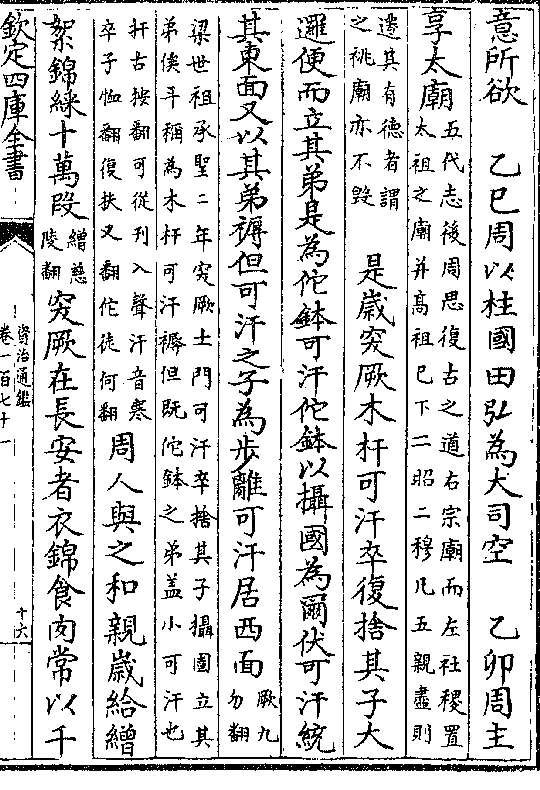 意所欲　乙巳周以柱國田弘為大司空　乙卯周主
享太廟
五代志後周思復古之道右宗廟而左社稷置
太祖之廟并高祖已下二昭二穆凡五親盡則
遷其有德者謂
之祧廟亦不毀
是歲突厥木杆可汗卒復捨其子大
邏便而立其弟是為佗鉢可汗佗鉢以攝圖為爾伏可汗統
其東面又以其弟褥但可汗之子為步離可汗居西面
厥九
勿翻
梁世祖承聖二年突厥土門可汗卒捨其子攝圖立其
弟俟斗稱為木杆可汗褥但既佗鉢之弟蓋小可汗也
杆古按翻可從刊入聲汗音寒
卒子恤翻復扶又翻佗徒何翻
周人與之和親歲給繒
絮錦綵十萬段
繒慈
陵翻
突厥在長安者衣錦食肉常以千
欽定四庫全書
資治通鑑
卷一百七十一
十六